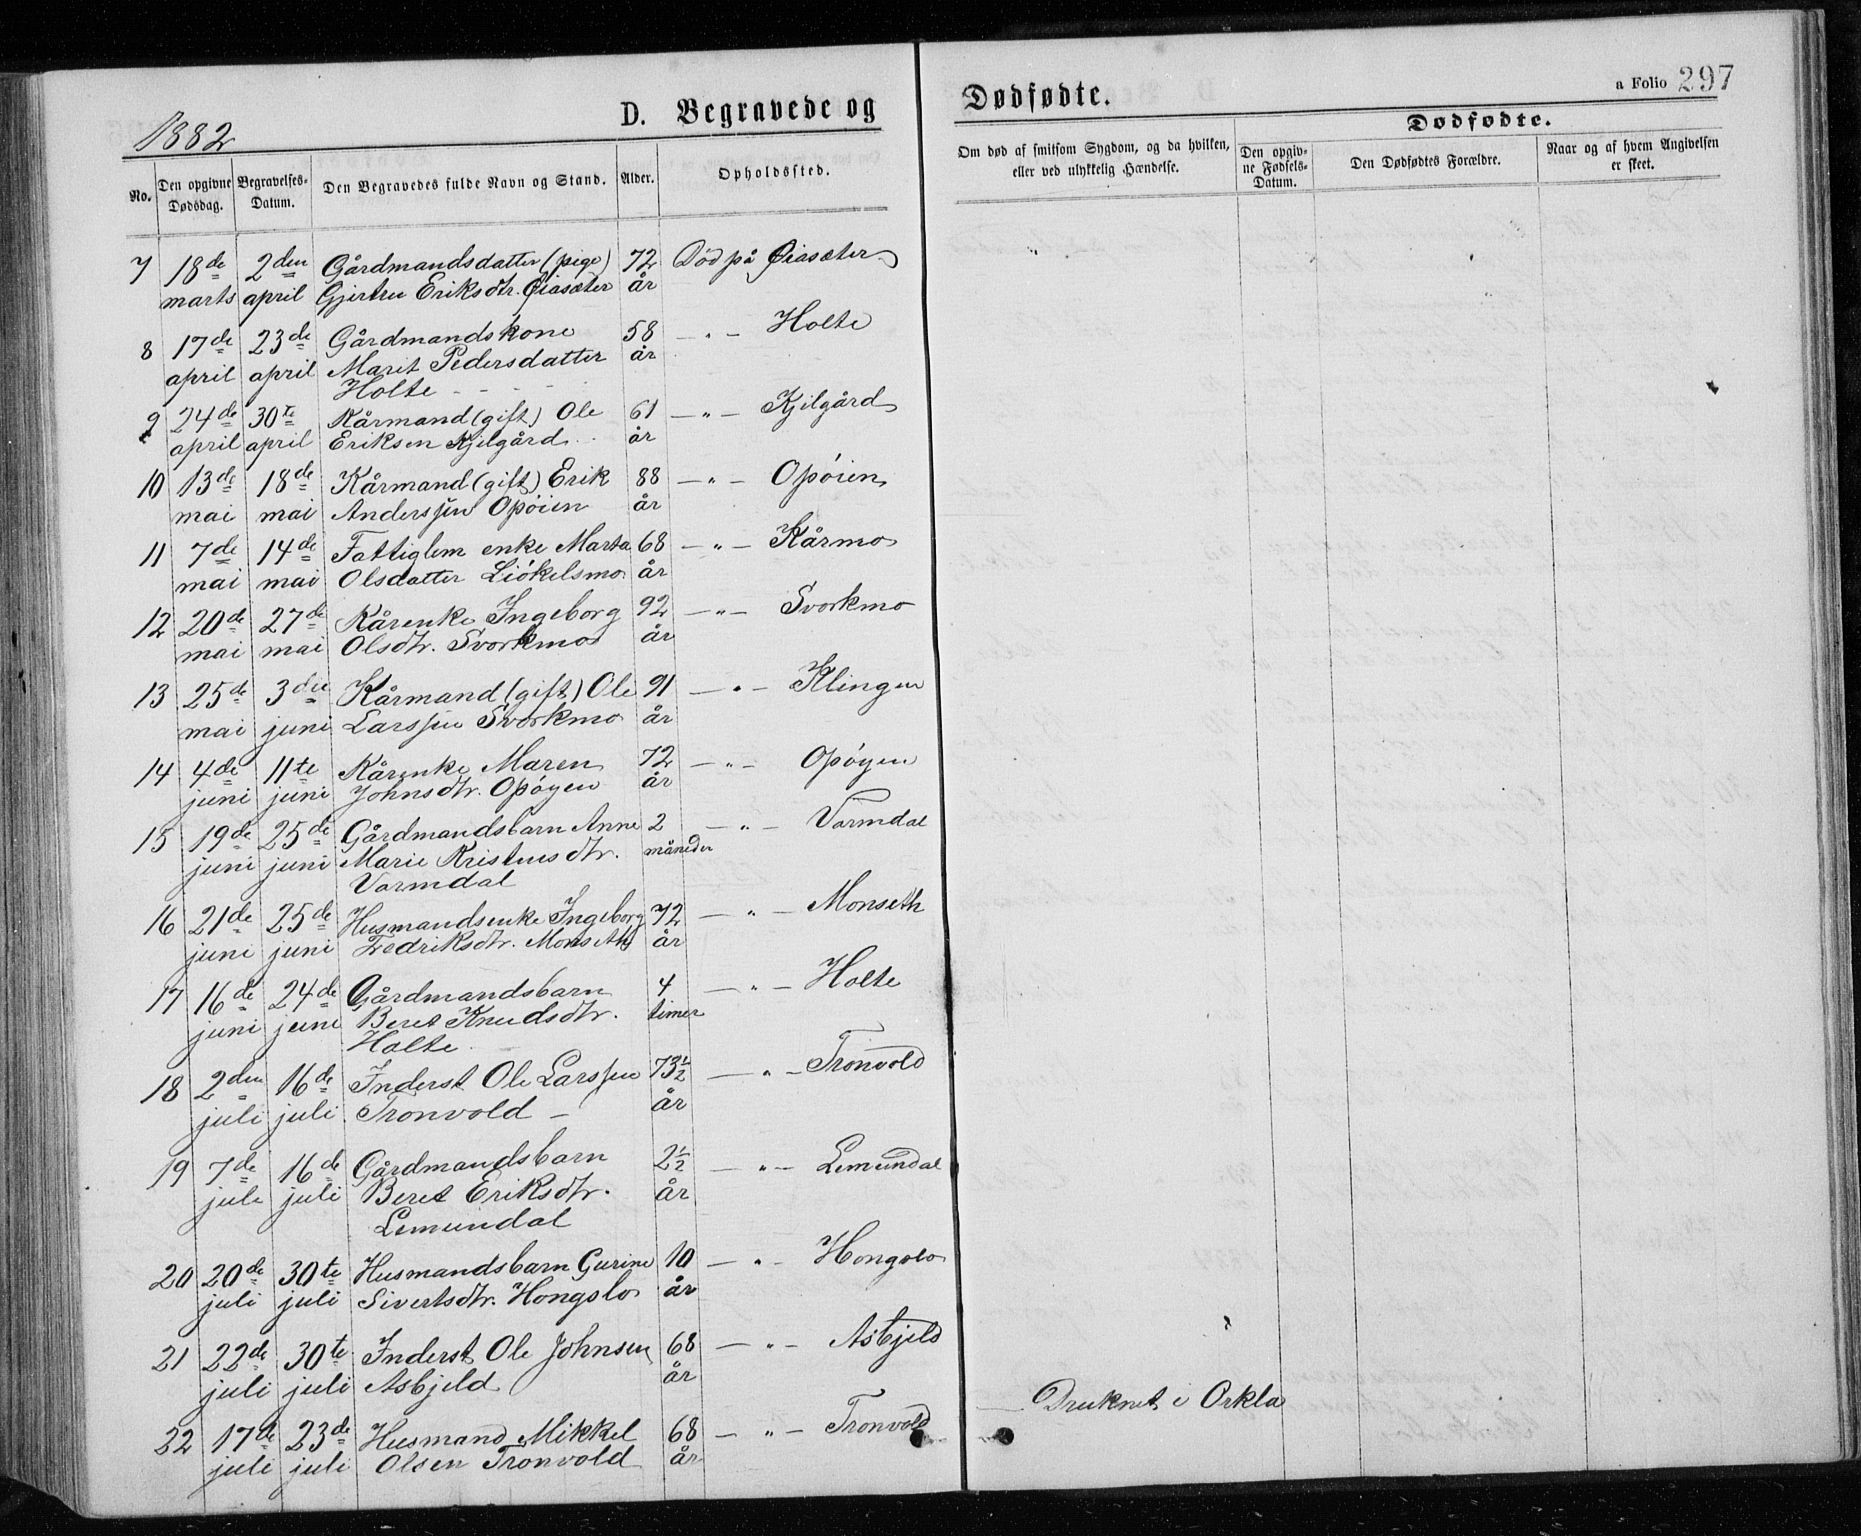 1882
D. Begravede og
Dødfødte.
a Folio 297
No.
Den opgivne Dødsdag.
Begravelses-Datum.
Den Begravedes fulde Navn og Stand.
Alder.
Opholdssted.
Om død af smitsom Sygdom, og da hvilken, eller ved ulykkelig Hændelse.
Dødfødte.
Den opgivne Fødsels-Datum.
Den Dødfødtes Forældre.
Naar og af hvem Angivelsen er skeet.
7 18de 2den Gårdmandsdatter (pige) 72 Død på Øiasæter
marts april Gjertru Eriksdtr. Øiasæter år
8 17de 23de Gårdmandskone 58 — " — Holte
april april Marit Pedersdatter år
Holte
9 24de 30te Kårmand (gift) Ole 61 — " — Kjilgård
april april Eriksen Kjelgård år
10 13de 18de Kårmand (gift) Erik 88 — " — Opøien
mai mai Anderssen Opøien år
11 7de 14de Fattiglem enke Marta 68 — " — Kårmo
mai mai Olsdatter Liökelsmo år
12 20de 27de Kårenke Ingeborg 92 — " — Svorkmo
mai mai Olsdtr. Svorkmo år
13 25de 3die Kårmand (gift) Ole 91 — " — Klingen
mai juni Larssen Svorkmo år
14 4de 11te Kårenke Maren 72 — " — Opøyen
juni juni Johnsdtr. Opøyen år
15 19de 25de Gårdmandsbarn Anne 2 — " — Varmdal
juni juni Marie Kristensdtr. måneder
Varmdal
16 21de 25de Husmandsenke Ingeborg 72 — " — Monseth
juni juni Fredriksdtr. Monseth år
17 16de 24de Gårdmandsbarn 4 — " — Holte
juni juni Beret Knudsdtr. timer
Holte
18 2den 16de Inderst Ole Larssen 73½ — " — Tronvold
juli juli Tronvold — år
19 7de 16de Gårdmandsbarn 2½ — " — Lemundal
juli juli Beret Eriksdtr. år
Lemundal
20 20de 30te Husmandsbarn Gurine 10 — " — Hongslo
juli juli Sivertsdtr. Hongslo år
21 22de 30te Inderst Ole Johnsen 68 — " — Asbjeld
juli juli Asbjeld år
22 17de 23de Husmand Mikkel 68 — " — Tronvold — Druknet i Orkla
juli juli Olsen Tronvold år